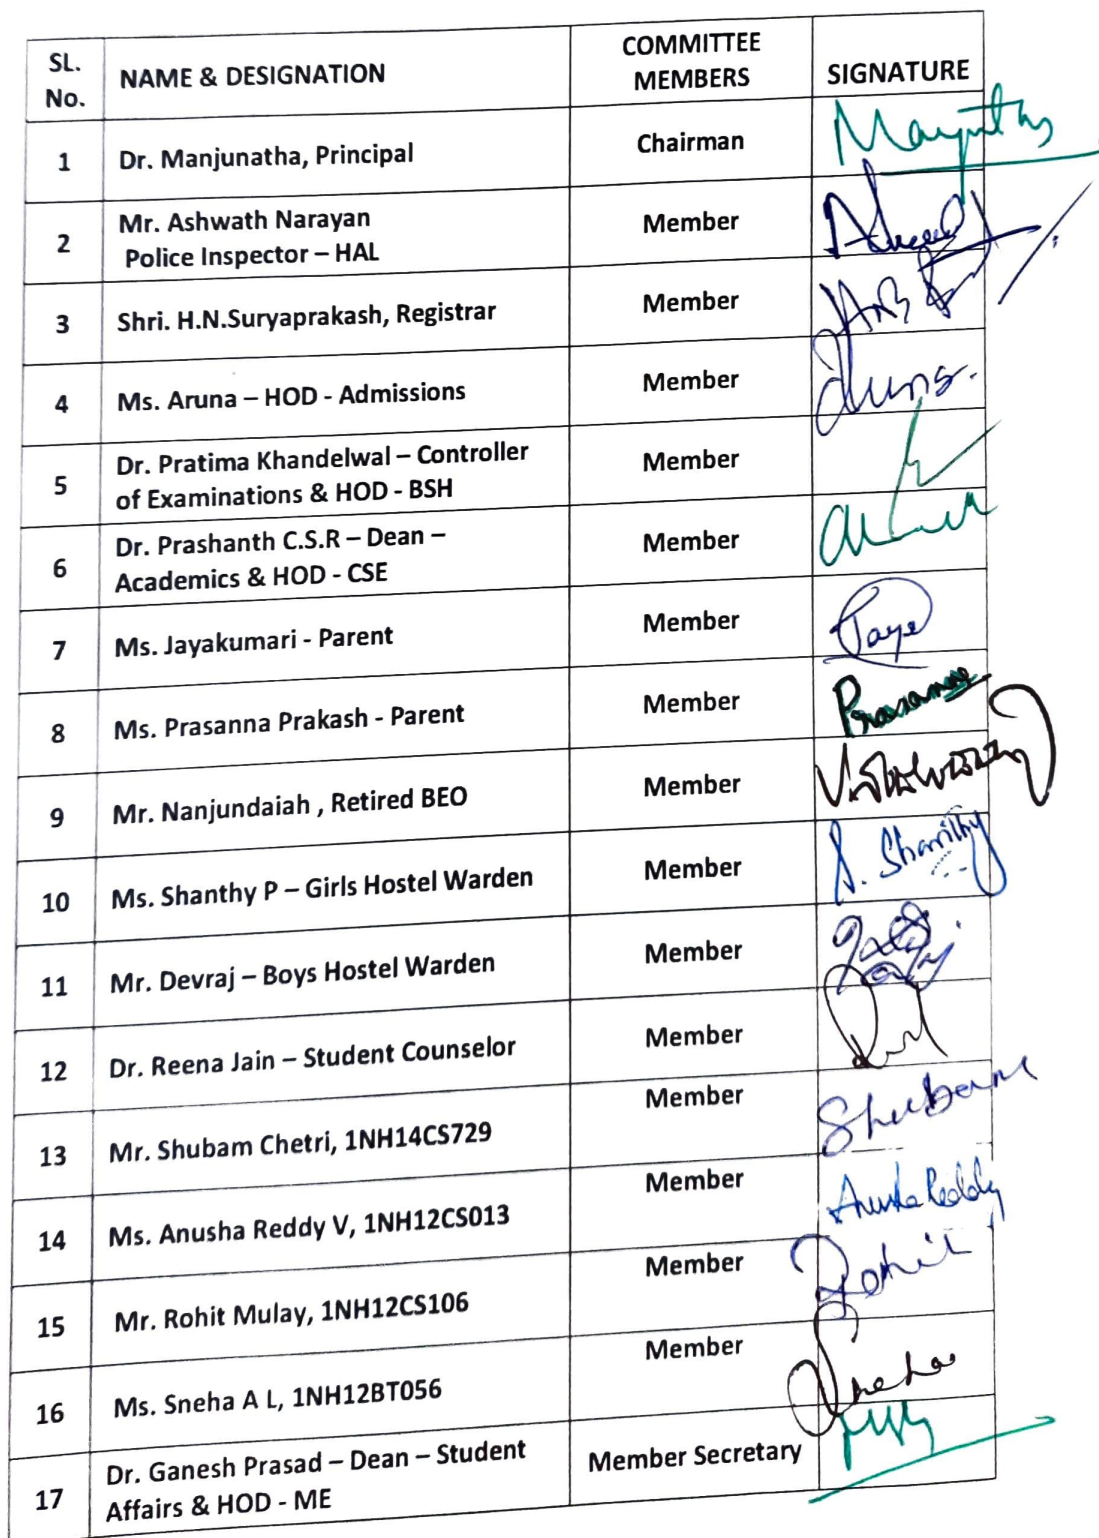 SL. No. NAME & DESIGNATION COMMITTEE MEMBERS SIGNATURE
1 Dr. Manjunatha, Principal Chairman
2 Mr. Ashwath Narayan Member
Police Inspector – HAL
3 Shri. H.N.Suryaprakash, Registrar Member
4 Ms. Aruna – HOD - Admissions Member
5 Dr. Pratima Khandelwal – Controller Member
of Examinations & HOD - BSH
6 Dr. Prashanth C.S.R – Dean – Member
Academics & HOD - CSE
7 Ms. Jayakumari - Parent Member
8 Ms. Prasanna Prakash - Parent Member Prasanna
9 Mr. Nanjundaiah , Retired BEO Member
10 Ms. Shanthy P – Girls Hostel Warden Member Shanthy
11 Mr. Devraj – Boys Hostel Warden Member
12 Dr. Reena Jain – Student Counselor Member
13 Mr. Shubam Chetri, 1NH14CS729 Member Shubam
14 Ms. Anusha Reddy V, 1NH12CS013 Member Anusha Reddy
15 Mr. Rohit Mulay, 1NH12CS106 Member Rohit
16 Ms. Sneha A L, 1NH12BT056 Member Sneha
17 Dr. Ganesh Prasad – Dean – Student Member Secretary
Affairs & HOD - ME